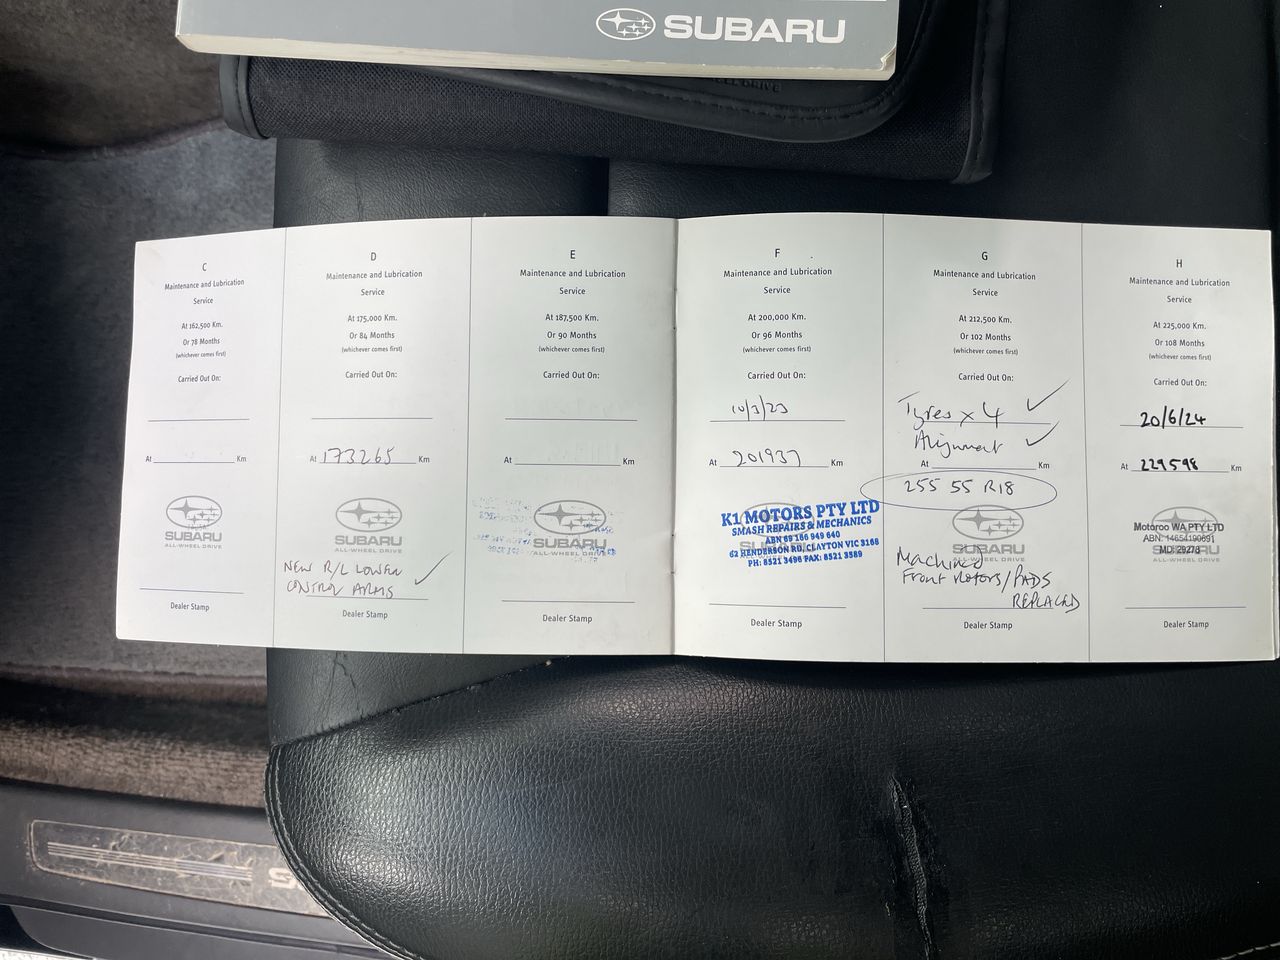 SUBARU
C
Maintenance and Lubrication
Service
At 162,500 Km.
Or 78 Months
(whichever comes first)
Carried Out On:
At Km
SUBARU
ALL-WHEEL DRIVE
Dealer Stamp
D
Maintenance and Lubrication
Service
At 175,000 Km.
Or 84 Months
(whichever comes first)
Carried Out On:
At 173265 Km
SUBARU
ALL-WHEEL DRIVE
NEW R/L LOWER
CONTROL ARMS
Dealer Stamp
E
Maintenance and Lubrication
Service
At 187,500 Km.
Or 90 Months
(whichever comes first)
Carried Out On:
At Km
SUBARU
ALL-WHEEL DRIVE
Dealer Stamp
F
Maintenance and Lubrication
Service
At 200,000 Km.
Or 96 Months
(whichever comes first)
Carried Out On:
10/3/23
At 201937 Km
K1 MOTORS PTY LTD
SMASH REPAIRS & MECHANICS
ABN 69 166 949 640
62 HENDERSON RD, CLAYTON VIC 3168
PH: 8521 3496 FAX: 8521 3589
Dealer Stamp
G
Maintenance and Lubrication
Service
At 212,500 Km.
Or 102 Months
(whichever comes first)
Carried Out On:
Tyres x 4
Alignment
At Km
255 55 R18
SUBARU
ALL-WHEEL DRIVE
Machined
Front Rotors/PADS
REPLACED
Dealer Stamp
H
Maintenance and Lubrication
Service
At 225,000 Km.
Or 108 Months
(whichever comes first)
Carried Out On:
20/6/24
At 229598 Km
Motoroo WA PTY LTD
ABN: 14654190691
MD: 29278
SUBARU
ALL-WHEEL DRIVE
Dealer Stamp